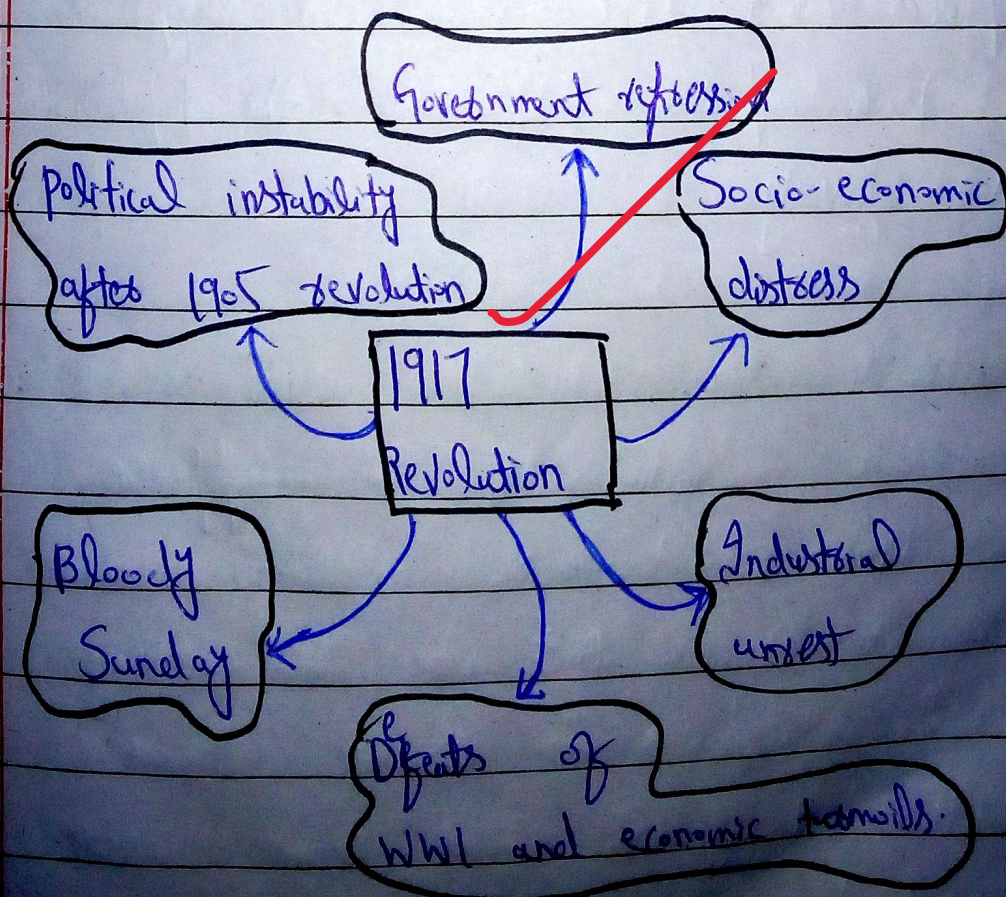 Government repression
Political instability
after 1905 revolution
Socio-economic
distress
1917
Revolution
Bloody
Sunday
Industrial
unrest
Defeats of
WW1 and economic turmoils.